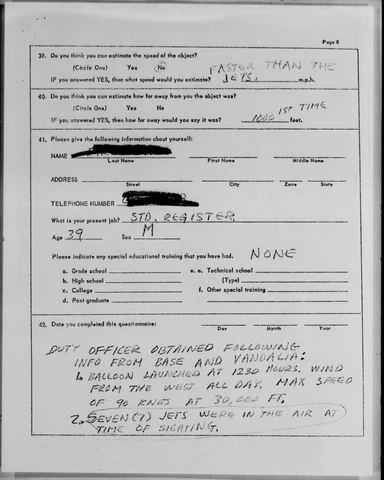 Page 8
39. Do you think you can estimate the speed of the object?
(Circle One) Yes No FASTER THAN THE
IF you answered YES, then what speed would you estimate? JETS. m.p.h.
40. Do you think you can estimate how far away from you the object was?
(Circle One) Yes No 1ST TIME
IF you answered YES, then how far away would you say it was? 1000 feet.
41. Please give the following information about yourself:
NAME
Last Name First Name Middle Name
ADDRESS
Street City Zone State
TELEPHONE NUMBER
What is your present job? STD. REGISTER
Age 39 Sex M
Please indicate any special educational training that you have had. NONE
a. Grade school e. Technical school
b. High school (Type)
c. College f. Other special training
d. Post graduate
42. Date you completed this questionnaire:
Day Month Year
DUTY OFFICER OBTAINED FOLLOWING
INFO FROM BASE AND VANDALIA:
1. BALLOON LAUNCHED AT 1230 HOURS. WIND
FROM THE WEST ALL DAY. MAX SPEED
OF 90 KNOTS AT 30,000 FT.
2. SEVEN (7) JETS WERE IN THE AIR AT
TIME OF SIGHTING.